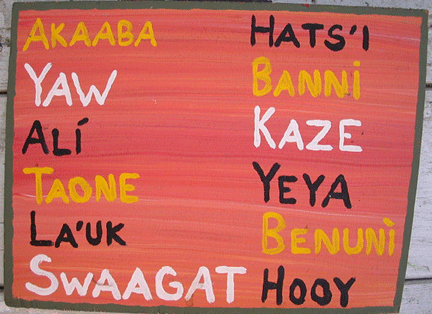 AKAABA
YAW
ALÍ
TAONE
LA'UK
SWAAGAT
HATS'I
BANNi
KAZE
YEYA
BENUNÌ
HOOY